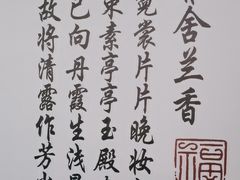 舍兰香
霓裳片片晚妆
束素亭亭玉殿
已向丹霞生浅
故将清露作芳